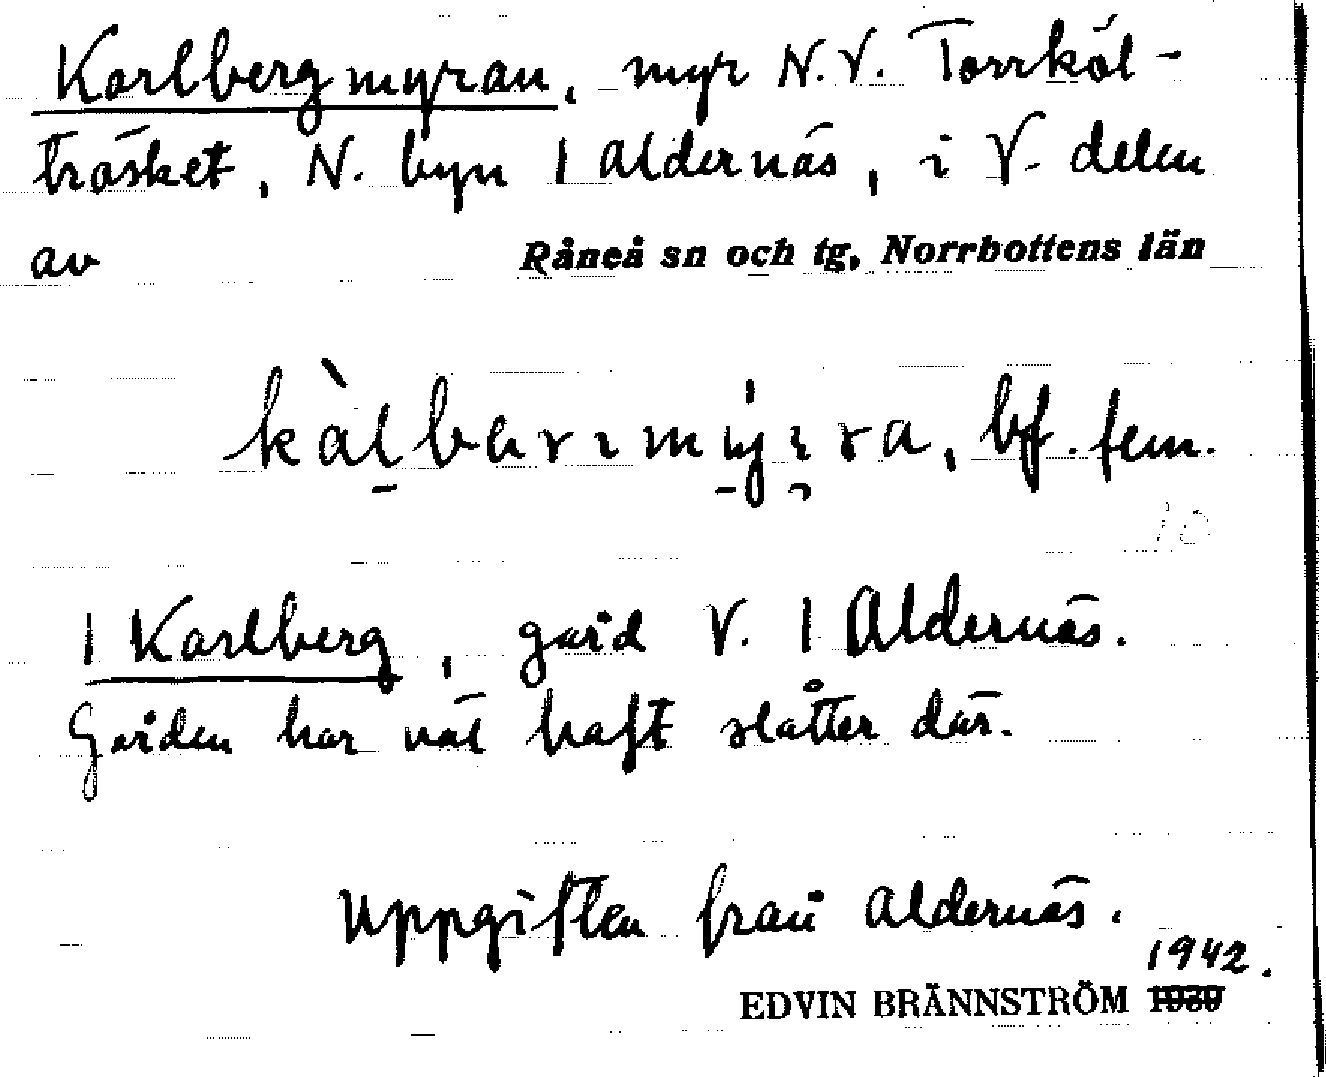 Karlbergmyran, myr N.V. Torrköl-
träsket, N. byn 1 Aldernäs, i V. delen
av Råneå sn och tg, Norrbottens län
bf. fem.
1 Karlberg, gård V. 1 Aldernäs.
Gården har väl haft slåtter där.
Uppgiften från Aldernäs.
1942.
EDVIN BRÄNNSTRÖM 1939